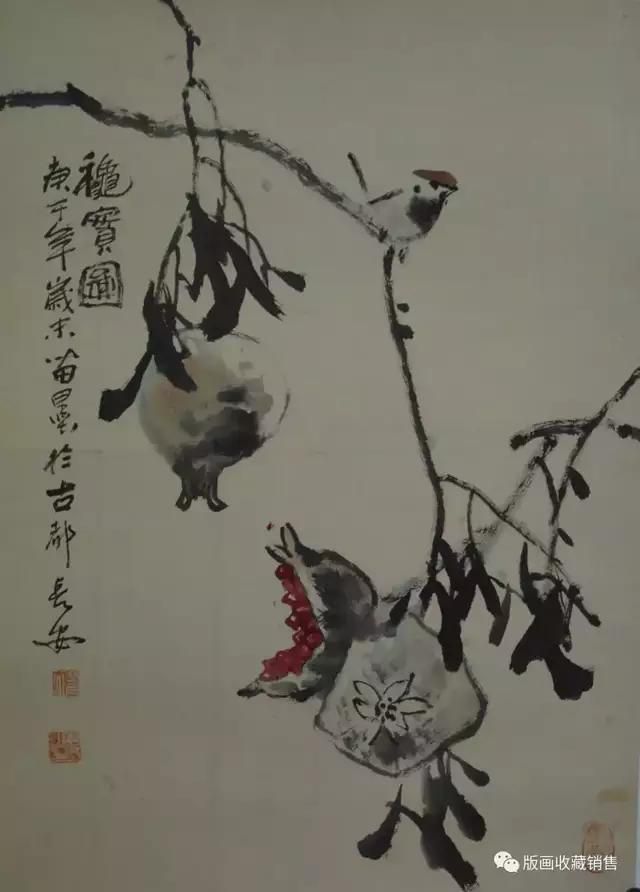 龝實圖
庚午年歲末苗墨於古都長安
版画收藏销售